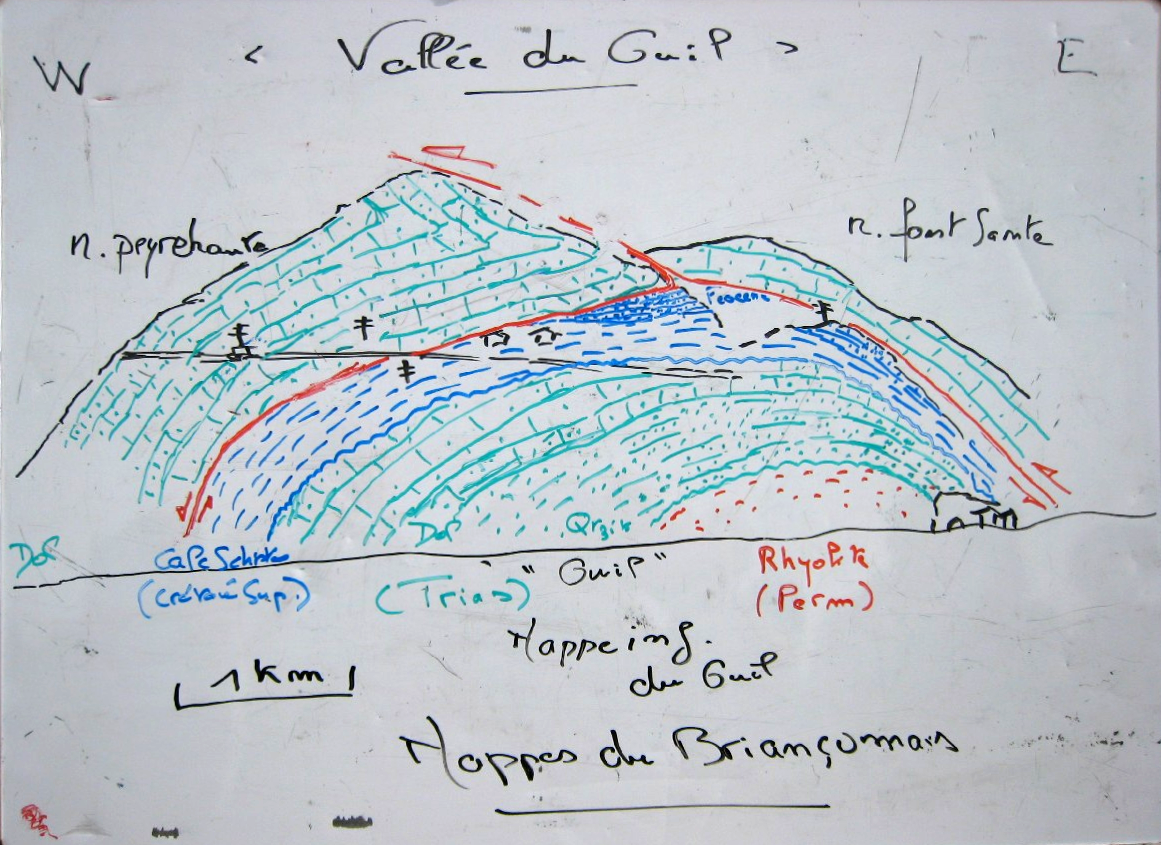 W < Vallée du Guil > E
n. peyrehaute
n. font Sante
Eocene
Dol
Dol
Qrzite
Calcschistes
(crétacé Sup.)
(Trias)
" Guil "
Rhyolite
(Perm)
1 km
Nappe inf.
du Guil
Nappes du Briançonnais